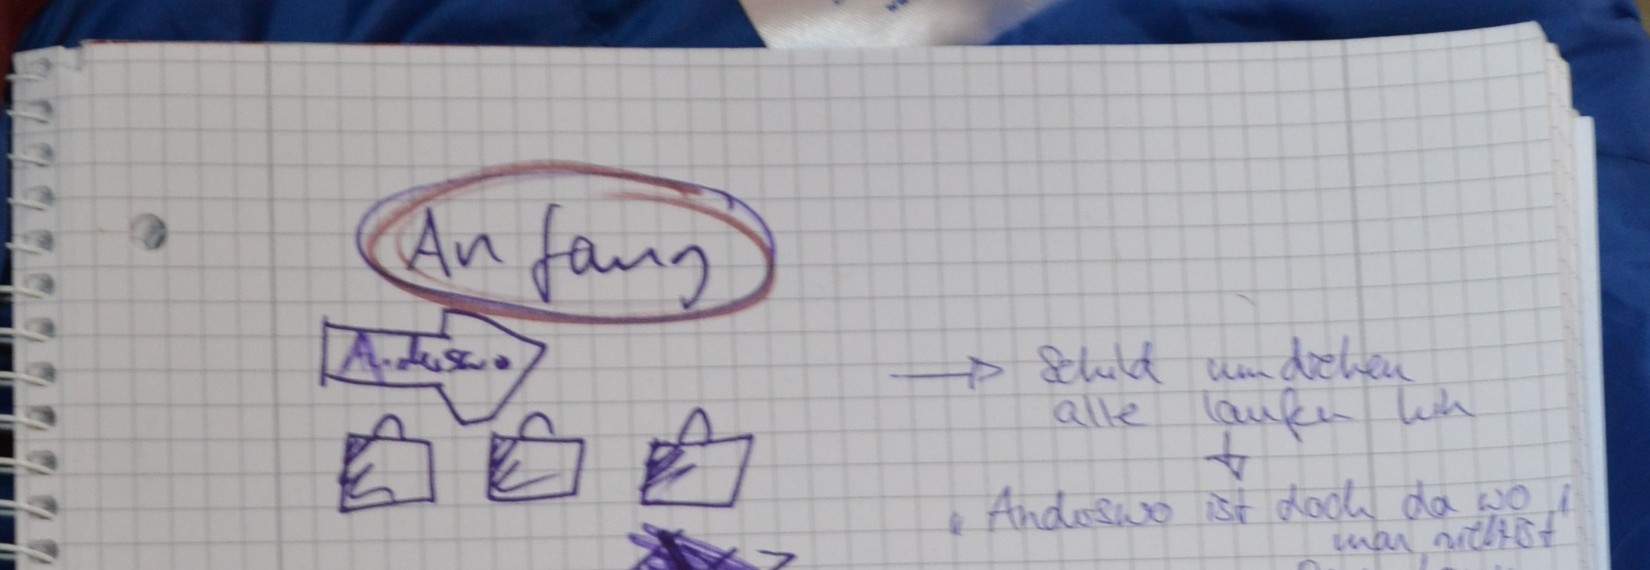 Anfang
Anderswo
→ Schild umdrehen
alle laufen hin
"Anderswo ist doch da wo
man nicht ist